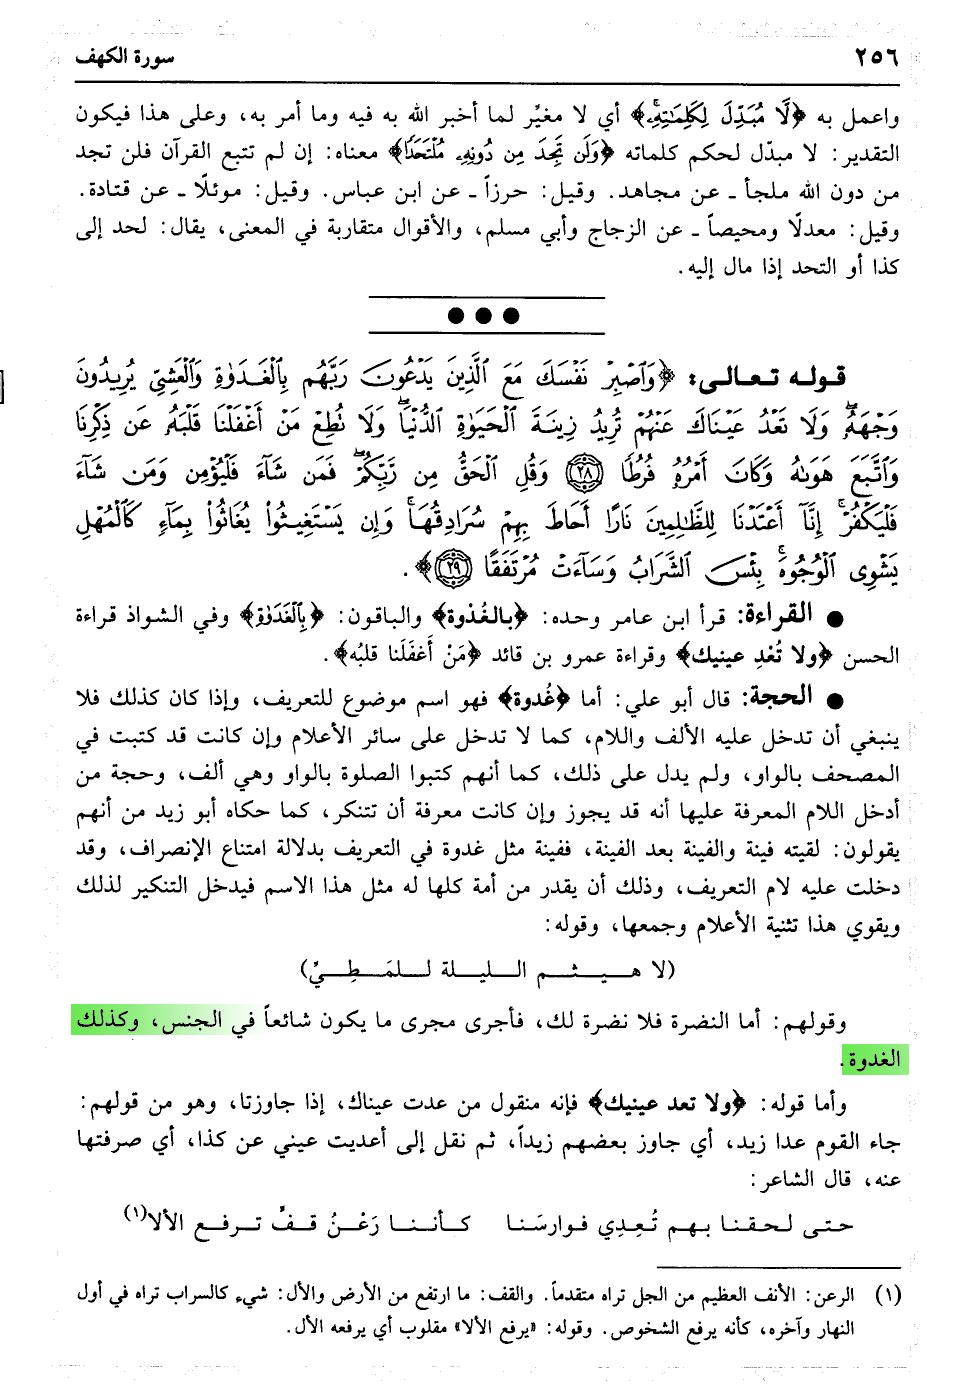 ٢٥٦ سورة الكهف
واعمل به ﴿لَّا مُبَدِّلَ لِكَلِمَٰتِهِۦ﴾ أي لا مغيِّر لما أخبر الله به فيه وما أمر به، وعلى هذا فيكون
التقدير: لا مبدّل لحكم كلماته ﴿وَلَن تَجِدَ مِن دُونِهِۦ مُلْتَحَدًا﴾ معناه: إن لم تتبع القرآن فلن تجد
من دون الله ملجأ ـ عن مجاهد. وقيل: حرزاً ـ عن ابن عباس. وقيل: موئلًا ـ عن قتادة.
وقيل: معدلًا ومحيصاً ـ عن الزجاج وأبي مسلم، والأقوال متقاربة في المعنى، يقال: لحد إلى
كذا أو التحد إذا مال إليه.
● ● ●
قوله تعالى: ﴿وَٱصْبِرْ نَفْسَكَ مَعَ ٱلَّذِينَ يَدْعُونَ رَبَّهُم بِٱلْغَدَوٰةِ وَٱلْعَشِيِّ يُرِيدُونَ
وَجْهَهُۥۖ وَلَا تَعْدُ عَيْنَاكَ عَنْهُمْ تُرِيدُ زِينَةَ ٱلْحَيَوٰةِ ٱلدُّنْيَاۖ وَلَا نُطِعْ مَنْ أَغْفَلْنَا قَلْبَهُۥ عَن ذِكْرِنَا
وَٱتَّبَعَ هَوَىٰهُ وَكَانَ أَمْرُهُۥ فُرُطًا ٢٨ وَقُلِ ٱلْحَقُّ مِن رَّبِّكُمْۖ فَمَن شَآءَ فَلْيُؤْمِن وَمَن شَآءَ
فَلْيَكْفُرْۚ إِنَّآ أَعْتَدْنَا لِلظَّٰلِمِينَ نَارًا أَحَاطَ بِهِمْ سُرَادِقُهَاۚ وَإِن يَسْتَغِيثُوا۟ يُغَاثُوا۟ بِمَآءٍ كَٱلْمُهْلِ
يَشْوِى ٱلْوُجُوهَۚ بِئْسَ ٱلشَّرَابُ وَسَآءَتْ مُرْتَفَقًا ٢٩﴾.
● القراءة: قرأ ابن عامر وحده: ﴿بالغُدوة﴾ والباقون: ﴿بِٱلْغَدَوٰةِ﴾ وفي الشواذ قراءة
الحسن ﴿ولا تُعْدِ عينيك﴾ وقراءة عمرو بن قائد ﴿مَنْ أَغفَلَنا قلبُه﴾.
● الحجة: قال أبو علي: أما ﴿غُدوة﴾ فهو اسم موضوع للتعريف، وإذا كان كذلك فلا
ينبغي أن تدخل عليه الألف واللام، كما لا تدخل على سائر الأعلام وإن كانت قد كتبت في
المصحف بالواو، ولم يدل على ذلك، كما أنهم كتبوا الصلوة بالواو وهي ألف، وحجة من
أدخل اللام المعرفة عليها أنه قد يجوز وإن كانت معرفة أن تتنكر، كما حكاه أبو زيد من أنهم
يقولون: لقيته فينة والفينة بعد الفينة، ففينة مثل غدوة في التعريف بدلالة امتناع الإنصراف، وقد
دخلت عليه لام التعريف، وذلك أن يقدر من أمة كلها له مثل هذا الاسم فيدخل التنكير لذلك
ويقوي هذا تثنية الأعلام وجمعها، وقوله:
(لا هيثم الليلة للمَطِيِّ)
وقولهم: أما النضرة فلا نضرة لك، فأجرى مجرى ما يكون شائعاً في الجنس، وكذلك
الغدوة.
وأما قوله: ﴿ولا تعد عينيك﴾ فإنه منقول من عدت عيناك، إذا جاوزتا، وهو من قولهم:
جاء القوم عدا زيد، أي جاوز بعضهم زيداً، ثم نقل إلى أعديت عيني عن كذا، أي صرفتها
عنه، قال الشاعر:
حتى لحقنا بهم تُعدِي فوارسَنا كأننا رَعْنُ قفٍّ ترفع الألا(١)
(١) الرعن: الأنف العظيم من الجل تراه متقدماً. والقف: ما ارتفع من الأرض والأل: شيء كالسراب تراه في أول
النهار وآخره، كأنه يرفع الشخوص. وقوله: «يرفع الألا» مقلوب أي يرفعه الأل.